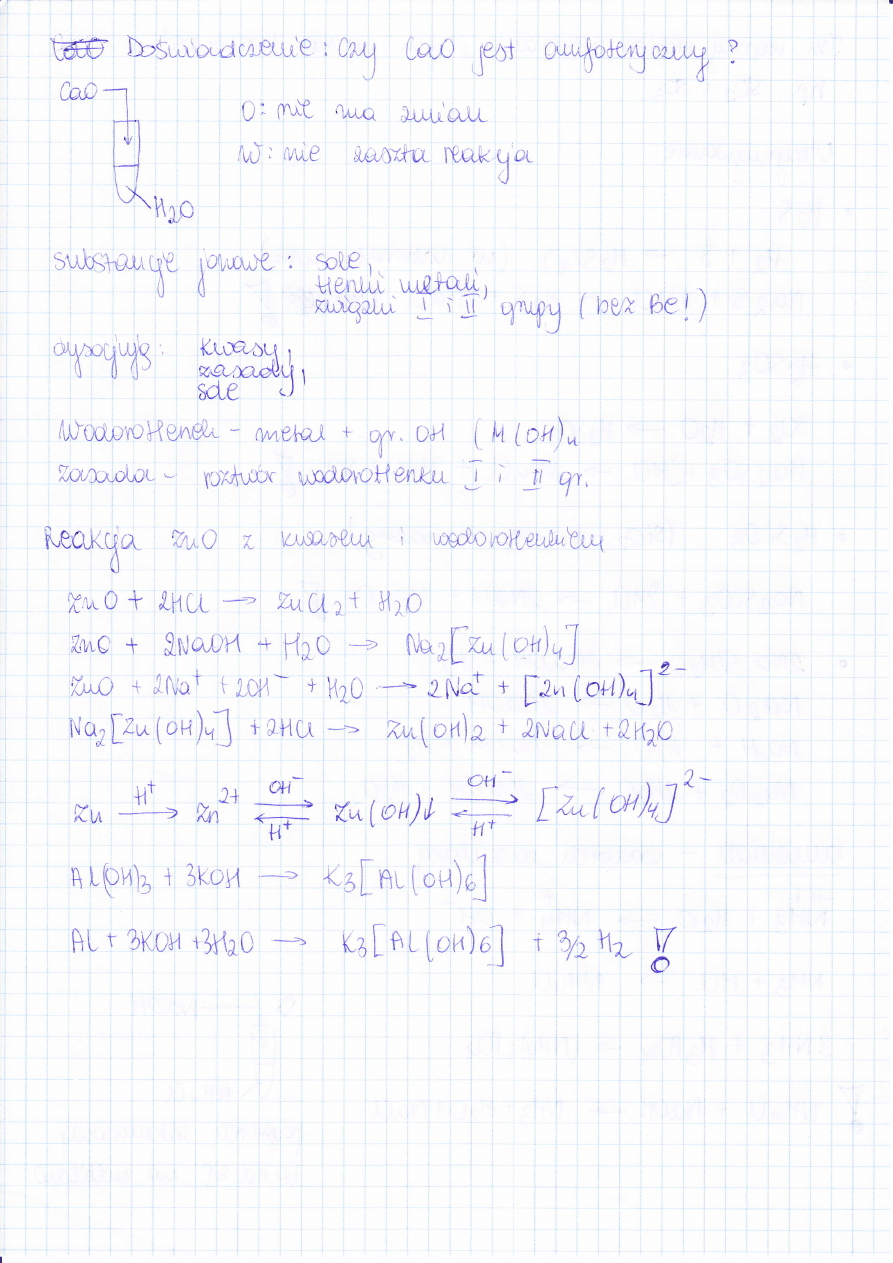 Doświadczenie: czy CaO jest amfoteryczny?
CaO
O: nie ma zmian
W: nie zaszła reakcja
H2O
substancje jonowe: sole,
tlenki metali,
związki I i II grupy (bez Be!)
dysocjują: kwasy,
zasady,
sole
Wodorotlenek - metal + gr. OH (M(OH)n
zasada - roztwór wodorotlenku I i II gr.
Reakcja ZnO z kwasem i wodorotlenkiem
ZnO + 2HCl → ZnCl2 + H2O
ZnO + 2NaOH + H2O → Na2[Zn(OH)4]
ZnO + 2Na+ + 2OH- + H2O → 2Na+ + [Zn(OH)4]2-
Na2[Zn(OH)4] + 2HCl → Zn(OH)2 + 2NaCl + 2H2O
Zn H+→ Zn2+ OH-⇌H+ Zn(OH)↓ OH-⇌H+ [Zn(OH)4]2-
Al(OH)3 + 3KOH → K3[Al(OH)6]
Al + 3KOH + 3H2O → K3[Al(OH)6] + 3/2 H2 !